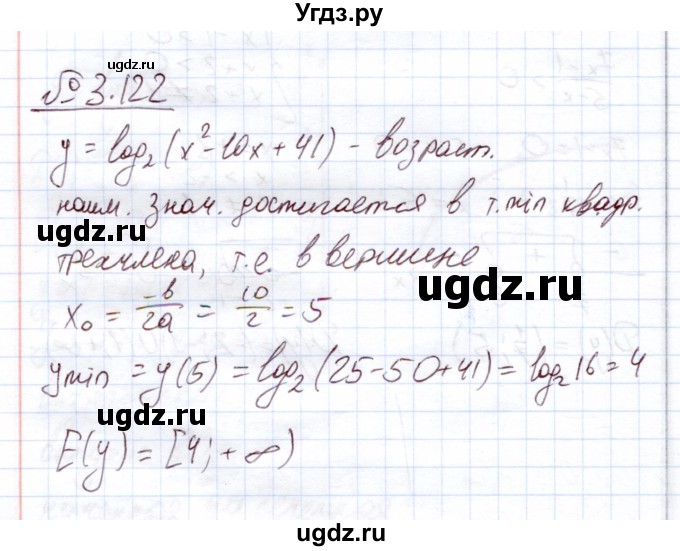 Угдз.ру
ugdz.ru
№ 3.122
y = log₂(x² - 10x + 41) - возраст.
ugdz.ru
наим. знач. достигается в т. min квадр.
ugdz.ru
трехчлена, т.е. в вершине
ugdz.ru
x₀ = -b/2a = 10/2 = 5
ugdz.ru
y min = y(5) = log₂(25-50+41) = log₂16 = 4
ugdz.ru
E(y) = [4; +∞)
ugdz.ru
ugdz.ru